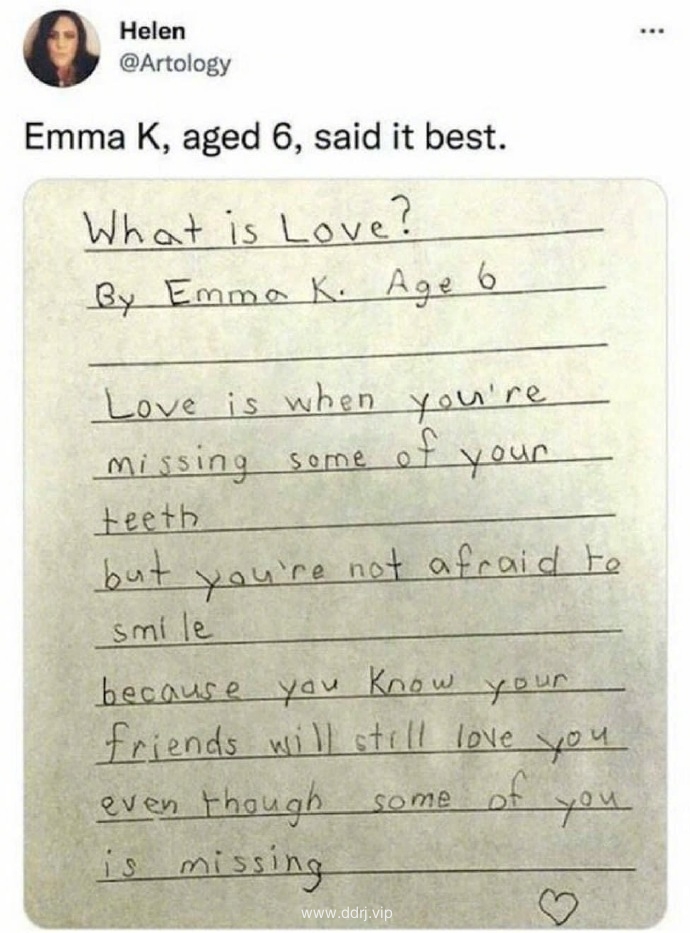 Helen
@Artology
Emma K, aged 6, said it best.
What is Love?
By Emma K. Age 6
Love is when you're
missing some of your
teeth
but you're not afraid to
smile
because you know your
friends will still love you
even though some of you
is missing
www.ddrj.vip